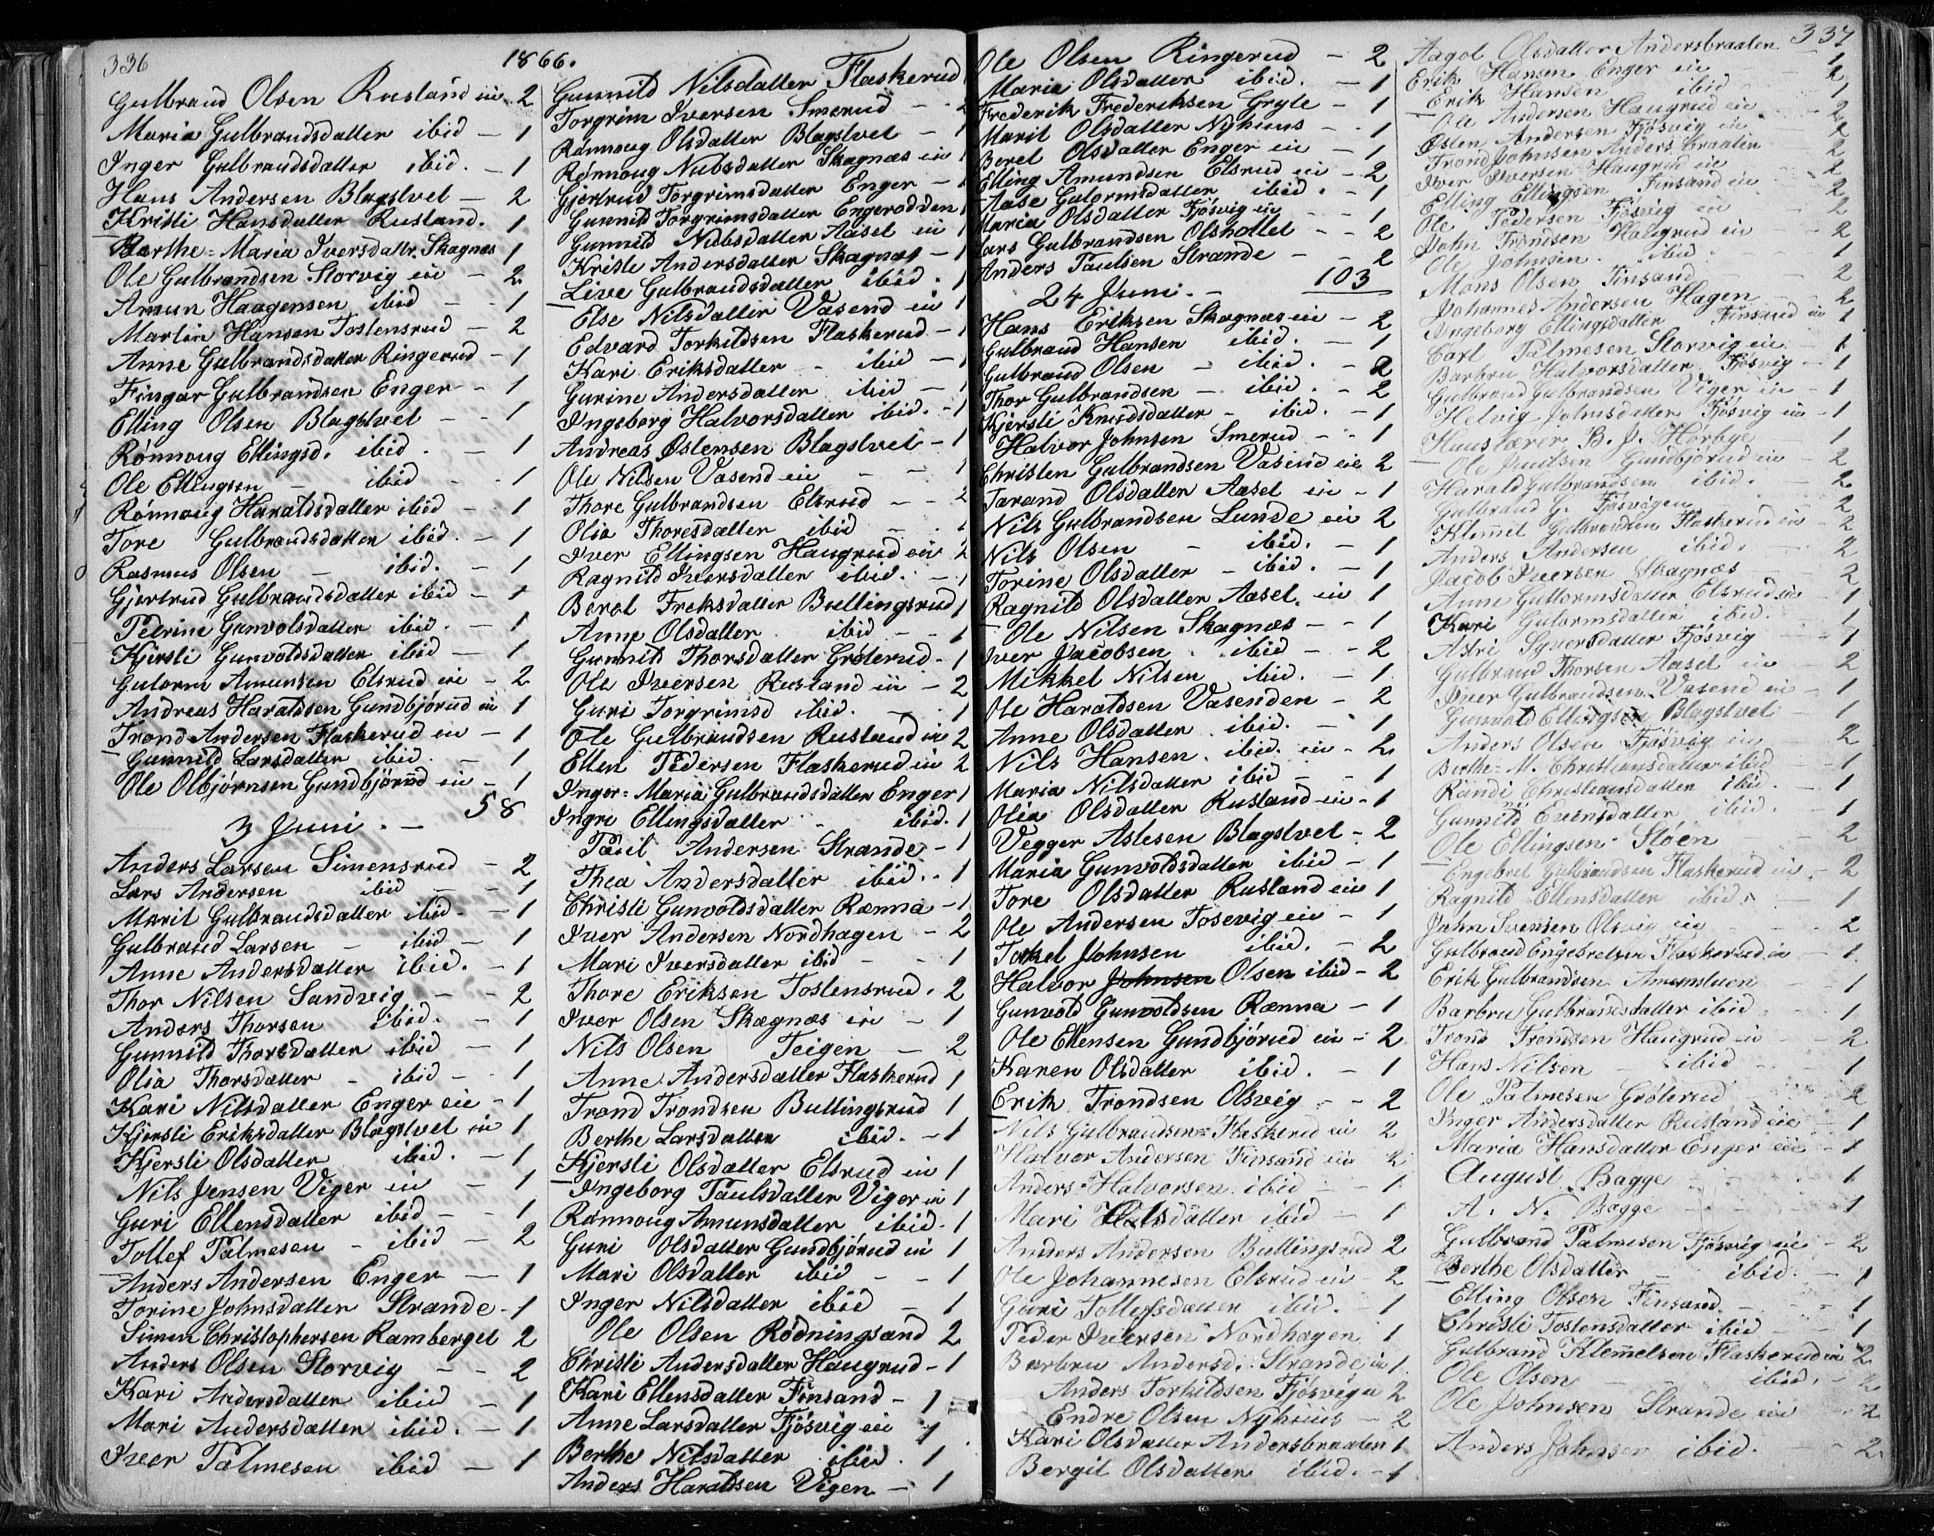 336
1866.
Gulbrand Olsen Rusland eie 2
Maria Gulbrandsdatter ibid — 1
Inger Gulbrandsdatter ibid. — 1
Hans Andersen Blagstvet — 2
Kristi Hansdatter Rusland. 1
Barthe-Maria Iversdatr. Skagnæs 1
Ole Gulbrandsen Storvig eie — 2
Amun Haagensen ibid — 1
Martin Hansen Tostensrud — 2
Anne Gulbrandsdatter Ringerud — 1
Fingar Gulbrandsen Enger — 1
Elling Olsen Blagstvet — 1
Rønnoug Ellingsd. ibid. — 1
Ole Ellingsen — ibid — 1
Rønnoug Haraldsdatter ibid — 1
Tore Gulbrandsdatter ibid. — 1
Rasmus Olsen — ibid. — 1
Gjertrud Gulbrandsdatter ibid — 1
Petrine Gunvolsdatter ibid. — 1
Kjersti Gunvoldsdatter ibid — 1
Gutorm Amunsen Elsrud eie — 2
Andreas Haraldsen Gundbjørud eie 1
Trond Andersen Flaskerud eie — 1
Gunnild Larsdatter ibid. — 1
Ole Olbjørnsen Gundbjørud eie — 1
58
3 Juni. —
Anders Larsen Simensrud — 2
Lars Andersen ibid — 1
Marit Gulbrandsdatter ibid. — 1
Gulbrand Larsen — ibid — 1
Anne Andersdatter ibid. — 1
Thor Nilsen Sandvig — 2
Anders Thorsen ibid. — 1
Gunnild Thorsdatter ibid — 1
Olia Thorsdatter — ibid — 1
Kari Nilsdatter Enger eie — 1
Kjersti Eriksdatter Blagstvet eie 1
Kjersti Olsdatter ibid. — 1
Nils Jensen Viger eie — 1
Guri Ellensdatter ibid — 1
Tollef Palmesen — ibid — 2
Anders Andersen Enger — 1
Torine Johnsdatter Strande — 1
Simen Christophersen Ramberget 2
Anders Olsen Storvig — 2
Kari Andersdatter ibid — 1
Mari Andersdatter ibid. — 1
Iver Palmesen ibid — 1
Gunnild Nilsdatter Flaskerud
Torgrim Iversen Smerud — 2
Rønnoug Olsdatter Blagstvet — 1
Rønnoug Nubsdatter Skagnæs eie 1
Gjertrud Torgrimsdatter Enger — 1
Gunnild Torgrimsdatter Engerodden 1
Gunnild Nubsdatter Aaset eie 1
Kristi Andersdatter Skagnæs — 1
Live Gulbrandsdatter ibid. 1
Else Nilsdatter Vasend eie 1
Edvard Torkildsen Flaskerud — 1
Kari Eriksdatter — ibid — 1
Gurine Andersdatter ibid — 1
Ingeborg Halvorsdatter ibid. — 1
Andreas Østensen Blagstvet — 1
Ole Nilsen Vasend eie — 1
Thore Gulbrandsen Elsrud — 2
Olia Thoresdatter ibid — 1
Iver Ellingsen Haugrud eie 2
Ragnild Iversdatter ibid. — 1
Berot Freksdatter Bullingsrud 1
Anne Olsdatter ibid — 1
Gunnild Thorsdatter Grøterud — 1
Ole Iversen Rusland eie — 2
Guri Torgrimsd ibid. — 1
Ole Gulbrandsen Rusland eie 2
Ellen Pedersen Flaskerud eie 2
Inger-Maria Gulbrandsdatter Enger 1
Ingri Ellingsdatter — ibid. 1
Paul Andersen Strande — 1
Thea Andersdatter ibid. — 1
Christi Gunvoldsdatter Rænna — 1
Iver Andersen Nordhagen — 2
Mari Iversdatter ibid — 1
Thore Eriksen Tostensrud. 2
Iver Olsen Skagnæs eie — 1
Nils Olsen Teigen — 2
Anne Andersdatter Flaskerud 1
Trond Trondsen Bullingsrud 1
Berthe Larsdatter ibid. — 1
Kjersti Olsdatter Elsrud eie 1
Ingeborg Paulsdatter Viger eie 1
Rønnoug Amunsdatter ibid. 1
Guri Olsdatter Gundbjørud eie 1
Mari Olsdatter ibid — 1
Inger Nilsdatter ibid — 1
Ole Olsen Rødningsand 2
Christi Andersdatter Haugrud — 1
Kari Ellensdatter Finsand — 1
Anne Larsdatter Fjøsvig eie 1
Berthe Nilsdatter ibid. 1
Anders Haraldsen Vigen — 1
337
Ole Olsen Ringerud — 2
Maria Olsdatter ibid. — 1
Frederik Frederiksen Gryte — 1
Marit Olsdatter Nyhuus — 1
Beret Olsdatter Enger eie — 1
Elling Amundsen Elsrud eie — 2
Aase Gutormsdatter ibid. — 1
Maria Olsdatter Fjøsvig eie — 1
Lars Gulbrandsen Olsholtet — 2
Anders Paulsen Strande — 2
103
24 Juni. —
Hans Eriksen Skagnæs eie — 2
Gulbrand Hansen ibid. — 1
Gulbrand Olsen — ibid. — 2
Thor Gulbrandsen — ibid. — 2
Kjersti Knudsdatter — ibid. — 1
Halvor Johnsen Smerud — 1
Christen Gulbrandsen Vasend eie 2
Tarand Olsdatter Aaset eie — 1
Nils Gulbrandsen Lunde eie 2
Nils Olsen — ibid. — 1
Torine Olsdatter — ibid. — 1
Ragnild Olsdatter Aaset. eie 1
Ole Nilsen Skagnæs — 1
Iver Jacobsen. ibid — 2
Mikkel Nilsen ibid. — 1
Ole Haraldsen Vasenden — 2
Anne Olsdatter ibid. — 1
Nils Hansen. ibid. eie — 2
Maria Nilsdatter ibid — 1
Olia Olsdatter Rusland eie — 1
Vegger Aslesen Blagstvet — 2
Maria Gunvoldsdatter ibid — 1
Tore Olsdatter Rusland eie 1
Ole Andersen Tosevig eie — 1
Torkel Johnsen ibid. — 2
Halvor Johnsen Olsen ibid — 2
Gunvold Gunvoldsen Rænna — 1
Ole Ellensen Gundbjørud eie — 2
Karen Olsdatter ibid. — 1
Erik Trondsen Olsvig — 2
Nils Gulbrandsen Flaskerud eie 2
Halvor Andersen Finsand eie 2
Anders Halvorsen. ibid — 1
Mari Nilsdatter ibid — 1
Anders Andersen Bullingsrud 2
Ole Johannesen Elsrud eie — 2
Guri Tollefsdatter ibid. — 1
Peder Iversen Nordhagen 1
Barbru Andersd. Strande eie 1
Anders Torkildsen Fjøsvig e 2
Endre Olsen Nyhuus — 2
Kari Olsdatter Andersbraaten 1
Bergit Olsdatter ibid. — 1
Aagot Olsdatter Andersbraaten 1
Erik Hansen Enger eie — 2
Erik Hansen ibid — 1
Ole Andersen Haugrud eie — 2
Østen Andersen Fjøsvig eie. 2
Trond Johnsen Andersbraaten 2
Iver Iversen Haugrud eie 2
Elling Ellingsen Finsand eie 2
Ole Pedersen Fjøsvig eie 2
John Trondsen Haugrud eie — 2
Ole Johnsen. ibid. — 1
Mons Olsen Finsand 2
Johannes Andersen Hagen — 2
Ingeborg Ellingsdatter Finsand eie 1
Carl Palmesen Storvig eie 1
Barbru Halvorsdatter Fjøsvig — 1
Gulbrand Gulbrandsen Viger eie — 1
Helvig Johnsdatter Fjøsvig eie — 1
Huuslærer B. J. Hørbye 1
Ole Paulsen Gundbjørud eie — 2
Harald Gulbrandsen ibid. — 2
Gulbrand G. Fjøsvigen 2
Klemmet Gulbrandsen Flaskerud eie 2
Anders Andersen ibid. — 2
Jacob Iversen Skagnæs — 2
Anne Gutormsdatter Elsrud eie — 1
Kari Gutormsdatter ibid. 1
Astri Syversdatter Fjøsvig — 1
Gulbrand Thorsen Aaset eie — 2
Iver Gulbrandsen Vasend eie — 1
Gunvold Ellingsen Blagstvet 1
Anders Olsen Fjøsvig eie 2
Berthe-M. Christiansdatter ibid — 1
Randi Christiansdatter ibid. 1
Gunnild Evensdatter ibid. 1
Ole Ellingsen Støen 2
Engebret Gulbrandsen Flaskerud eie. 2
Ragnild Ellensdatter ibid. — 1
John Svensen Olsvig eie 2
Gulbrand Engebretsen Flaskerud eie — 1
Erik Gulbrandsen 1
Barbru Gulbrandsdatter ibid 1
Trond Trondsen Haugrud eie 2
Hans Nilsen ibid — 1
Ole Palmesen Grøterud 2
Inger Andersdatter Rusland eie — 1
Maria Hansdatter Enger eie — 1
August Bagge — 1
A. N. Bagge — 1
Gulbrand Palmesen Fjøsvig eie — 2
Berthe Olsdatter — ibid. — 1
Elling Olsen Finsand. — 1
Christi Tostensdatter ibid — 1
Gulbrand Klemetsen Flaskerud eie 2
Ole Olsen — ibid. — 2
Ole Johnsen Strande eie 2
Anders Johnsen ibid. — 2